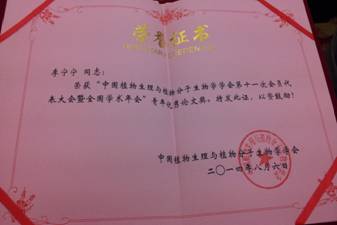 荣誉证书
李宁宁 同志：
荣获“中国植物生理与植物分子生物学学会第十一次会员代
表大会暨全国学术年会”青年优秀论文奖。特发此证，以资鼓励！
中国植物生理与植物分子生物学学会
二〇一四年八月六日